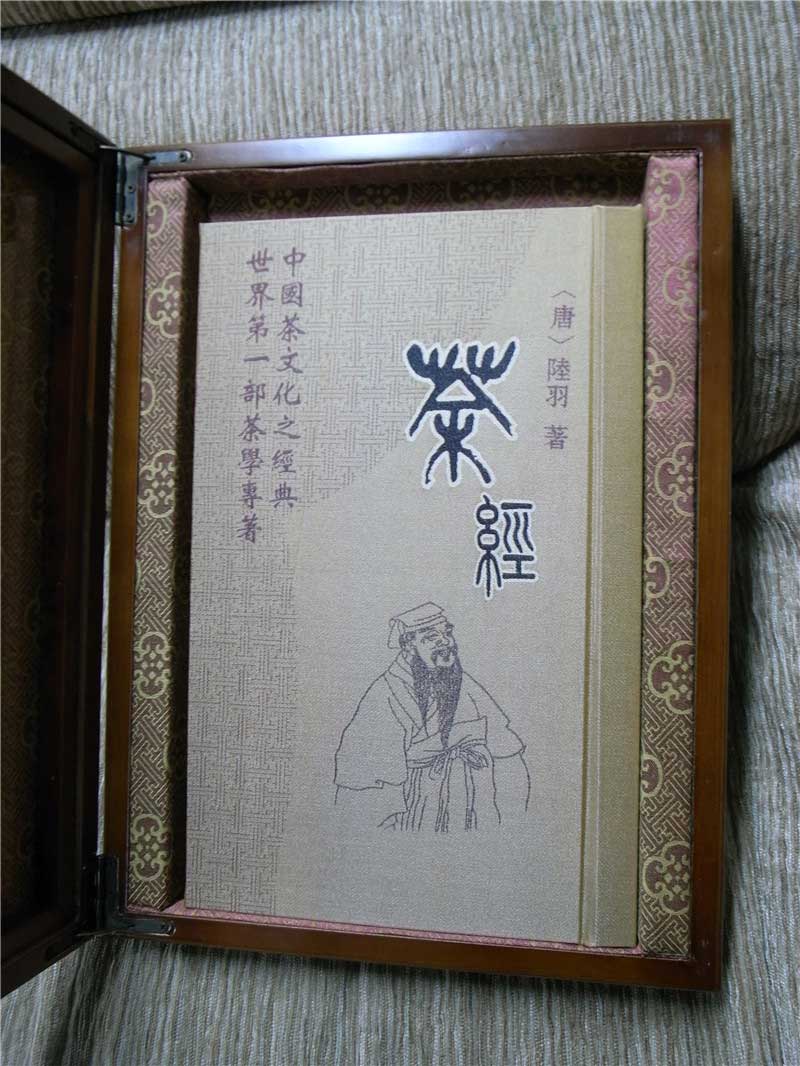 〈唐〉陸羽 著
茶經
中國茶文化之經典
世界第一部茶學專著